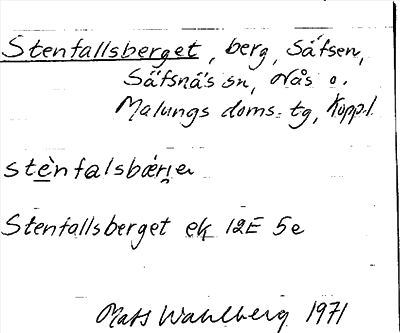 Stenfallsberget, berg, Säfsen,
Säfsnäs sn, Nås o.
Malungs doms. tg, Kopp.l.
stènfalsbærje
Stenfallsberget ek 12E 5e
Mats Wahlberg 1971